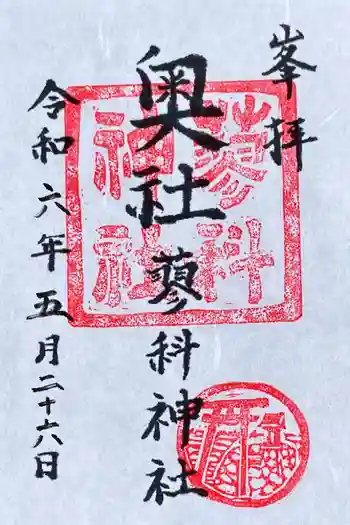 峯拝
奥社
蓼科神社
令和六年五月二十六日
蓼科
神社